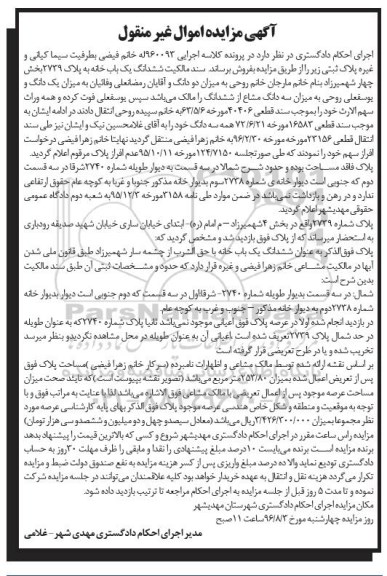 آگهی مزایده اموال غیر منقول
اجرای احکام دادگستری در نظر دارد در پرونده کلاسه اجرایی ۹۶۰۰۹۳له خانم فیضی بطرفیت سیما کیانی و
غیره پلاک ثبتی زیر را از طریق مزایده بفروش برساند. سند مالکیت ششدانگ یک باب خانه به پلاک ۲۷۳۹بخش
چهار شهمیرزاد بنام خانم مارجان خانم روحی به میزان دو دانگ و آقایان رمضانعلی وفائیان به میزان یک دانگ و
یوسفعلی روحی به میزان سه دانگ مشاع از ششدانگ را مالک می‌باشد سپس یوسفعلی فوت کرده و همه وراث
سهم الارث خود را بموجب سند قطعی ۴۰۴۰۶مورخه ۶۳/۵/۶به خانم سپیده روحی انتقال دادند در ادامه ایشان به
موجب سند قطعی ۱۶۵۸۳مورخه ۷۲/۶/۲۱ همه سه دانگ خود را به آقای غلامحسین نیک و ایشان نیز طی سند
انتقال قطعی ۲۳۱۵۶مورخه مورخه ۹۶/۲/۳۰به خانم زهرا فیضی منتقل گردید نهایتا خانم زهرا فیضی درخواست
افراز سهم خود را نمودند که طی صورتجلسه ۱۲۴/۷۱۵۰مورخه ۹۵/۱۰/۱۱عدم افراز پلاک مرقوم اعلام گردید.
پلاک فاقد مساحت بوده و حدود شرح شمالا در سه قسمت به دیوار طویله شماره ۲۷۴۰شرقا در سه قسمت
دوم که جنوبی است دیوار خانه ی شماره ۲۷۳۸سوم بدیوار خانه مذکور جنوبا و غربا به کوچه عام حقوق ارتفاعی
ندارد و در رهن و بازداشت نمی‌باشد در ضمن موارد طی نامه ۳۱۵۸مورخه ۹۵/۱۲/۳به شعبه دوم دادگاه عمومی
حقوقی مهدیشهر اعلام گردید.
پلاک شماره ۲۷۳۹واقع در بخش ۴شهمیرزاد – م امام (ره)- ابتدای خیابان ساری خیابان شهید صدیقه رودباری
به استحضار میرساند که از پلاک فوق بازدید شد و مشخص گردید که:
پلاک فوق‌الذکر به عنوان ششدانگ یک باب خانه با حق الشرب از چشمه سار شهمیرزاد طبق قانون ملی شدن
آبها در مالکیت مشاعی خانم زهرا فیضی و غیره قرار دارد که حدود و مشخصات ثبتی آن طبق سند مالکیت
بدین شرح است:
شمال: در سه قسمت بدیوار طویله شماره ۲۷۴۰- شرقا اول در سه قسمت که دوم جنوبی است دیوار بدیوار خانه
شماره ۲۷۳۸دوم به دیوار خانه مذکور – جنوب و غرب به کوچه عام
در بازدید انجام شده اولا در عرصه پلاک فوق اعیانی موجود نمی‌باشد ثانیا پلاک شماره ۲۷۴۰که به عنوان طویله
در حد شمال پلاک ۲۷۳۹تعریف شده است ،اعیانی آن به عنوان طویله در محل مشاهده نگردیدو بنظر میرسد
تخریب شده و یا در طرح تعریضی قرار گرفته است
بر اساس نقشه ارائه شده توسط مالک مشاعی و اظهارات نامبرده (سرکار خانم زهرا فیضی )مساحت پلاک فوق
پس از تعریض اعمال شده بمیزان ۲۵۳/۸۰متر مربع می‌باشد (تصویر نقشه پیوست است)که تایید صحت میزان
مساحت عرصه موجود پس از اعمال تعریض با مالک مشاعی فوق الاشاره می‌باشد لذا با عنایت به مراتب فوق و با
توجه به موقعیت و منطقه و شکل خاص هندسی عرصه موجود پلاک فوق الذکر بهای پایه کارشناسی عرصه مورد
نظر مجموعا بمیزان ۳/۴۲۶/۳۰۰/۰۰۰ریال می‌باشد(معادل سیصدو چهل و دو میلیون و ششصدو سی هزار تومان)
مزایده راس ساعت مقرر در اجرای احکام دادگستری مهدیشهر شروع و کسی که بالاترین قیمت را پیشنهاد بدهد
برنده مزایده است برنده می‌بایست ۱۰درصد مبلغ پیشنهادی را نقدا و مابقی را ظرف مهلت ۳۰روز به حساب
دادگستری تودیع نماید والا ده درصد مبلغ واریزی پس از کسر هزینه مزایده به نفع صندوق دولت ضبط و مزایده
تکرار می‌گردد هزینه نقل و انتقال به عهده خریدار خواهد بود کلیه علاقمندان می‌توانند در جلسه مزایده شرکت
نموده و تا مدت ۵ روز قبل از جلسه مزایده به اجرای احکام مراجعه تا ترتیب بازدید داده شود.
مکان مزایده اجرای احکام دادگستری شهرستان مهدیشهر
روز مزایده چهارشنبه مورخ ۹۶/۸/۳ساعت ۱۱صبح
مدیر اجرای احکام دادگستری مهدی شهر – غلامی